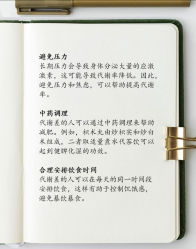 避免压力
长期压力会导致身体分泌大量的应激
激素，这可能导致代谢率降低。因此，
避免压力和焦虑，可以帮助提高代谢
率。
中药调理
代谢差的人可以通过中药调理来帮助
减肥。例如，枳术丸由炒枳实和炒白
术组成，二者取适量煮水代茶饮可以
起到健脾化湿的功效。
合理安排饮食时间
代谢差的人可以在每天的同一时间段
安排饮食，这样有助于控制饥饿感，
避免暴饮暴食。